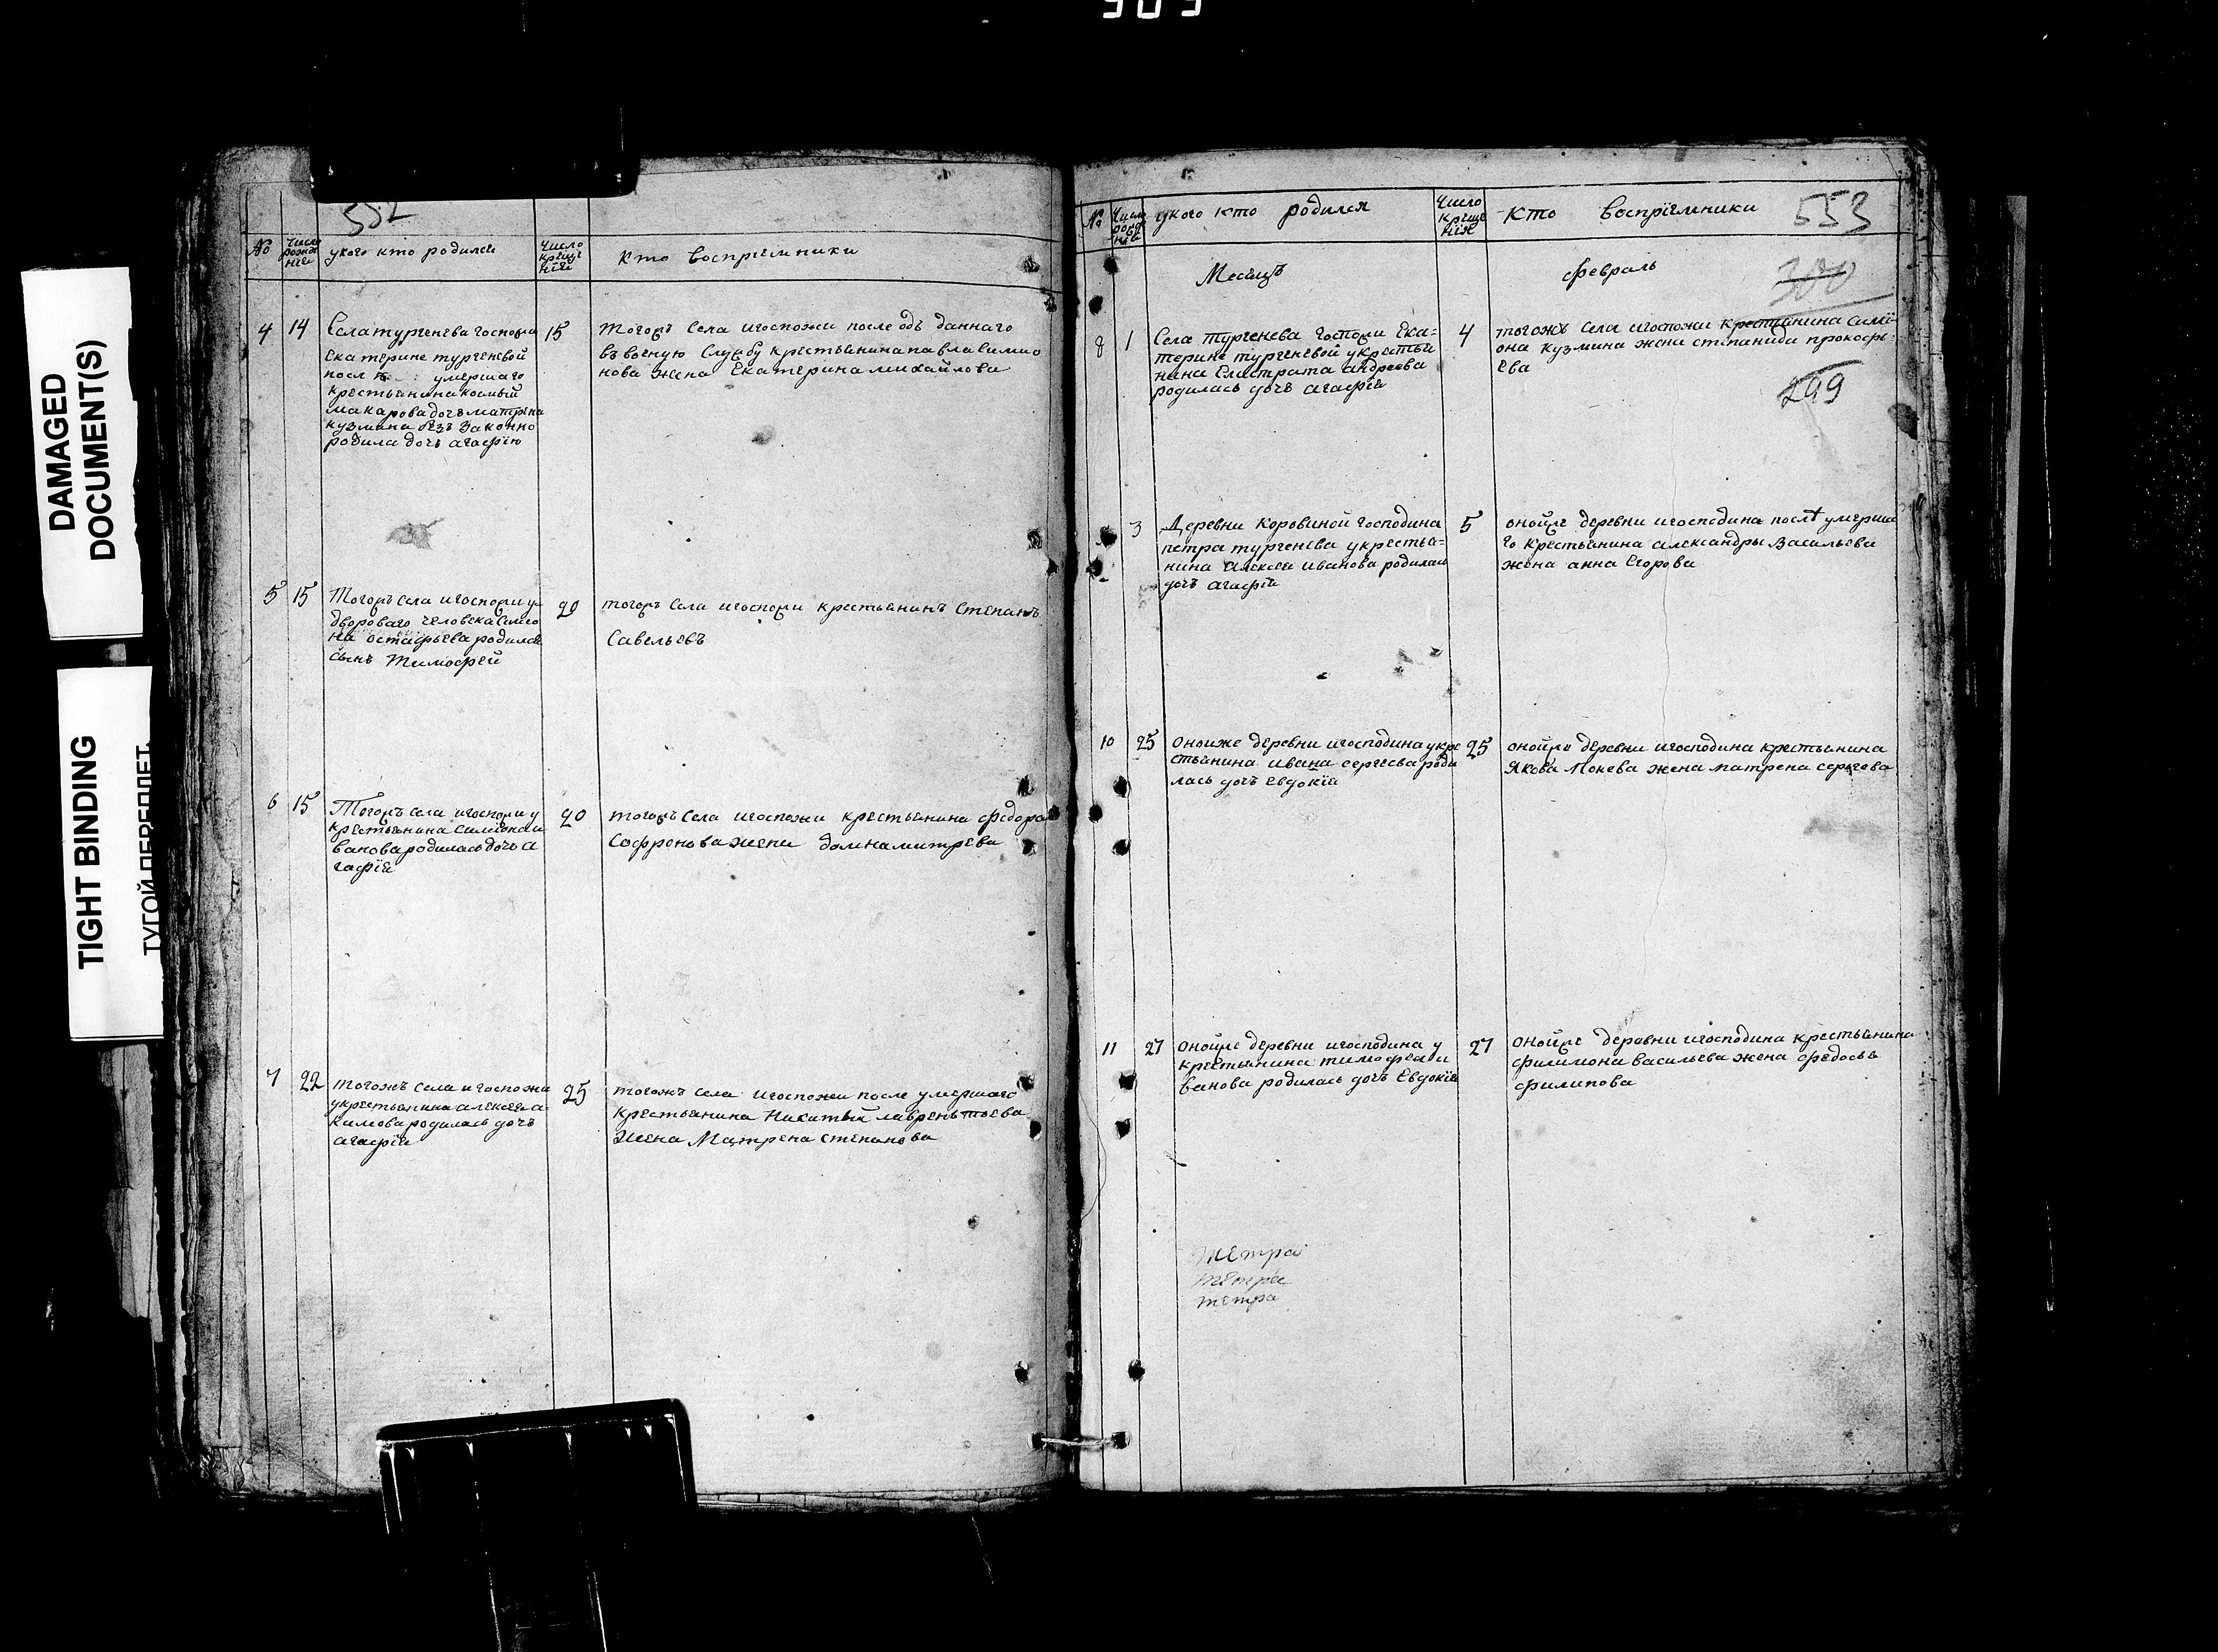 DAMAGED
DOCUMENT(S)
TIGHT BINDING
ТУГОЙ ПЕРЕПЛЕТ.
552
№
Число рожденїе
укого кто родился
Число крещенїя
кто воспрїемники
4
14
Села тургенева госпожи
Екатерине тургеневой
после умершаго
крестьянина космый
макарова дочь матрена
кузмина безъ Законно
родила дочь агафїю
15
тогожъ села игоспожи после одъ даннаго
въ военую Службу крестьянина павла симио
нова жена Екатерина михайлова
5
15
Тогожъ села игоспожи у
двороваго человека Симео
на остафьева родился
сынъ Тимофей
20
тогожъ села игоспожи крестьянинъ Степанъ
Савельевъ
6
15
Тогожъ села игоспожи у
крестьянина Симиона и
ванова родилась дочь а
гафїя
20
тогожъ села игоспожи крестьянина федора
Софронова жена домна митрева
7
22
тогожъ села игоспожи
укрестьянина алексея а
кимова родилась дочь
агафїя
25
тогожъ села игоспожи после умершаго
крестьянина Никитый лаврентьева
жена Матрена степанова
№
Число рожденїе
укого кто родился
Число крещенїя
кто воспрїемники
553
Месяцъ
февраль
300
8
1
Села тургенева госпожи Ека=
терине тургеневой укрестья
нина Елистрата андреева
родилась дочь агафїя
4
тогожъ села игоспожи крестьянина Симї=
она кузмина жена степанида прокофь=
ева
299
3
Деревни коровиной господина
петра тургенева укрестья=
нина алексея иванова родилась
дочь агафїя
5
онойже деревни игосподина послѣ умерша
го крестьянина александры васильева
жена анна Егорова
10
25
онойже деревни игосподина укре
стьянина ивана сергеева роди
лась дочь Евдокїя
25
онойже деревни игосподина крестьянина
Якова Мокева жена матрена сергеева
11
27
онойже деревни игосподина у
крестьянина тимофея и
ванова родилась дочь Евдокїя
27
онойже деревни игосподина крестьянина
филимона васильева жена федосья
филипова